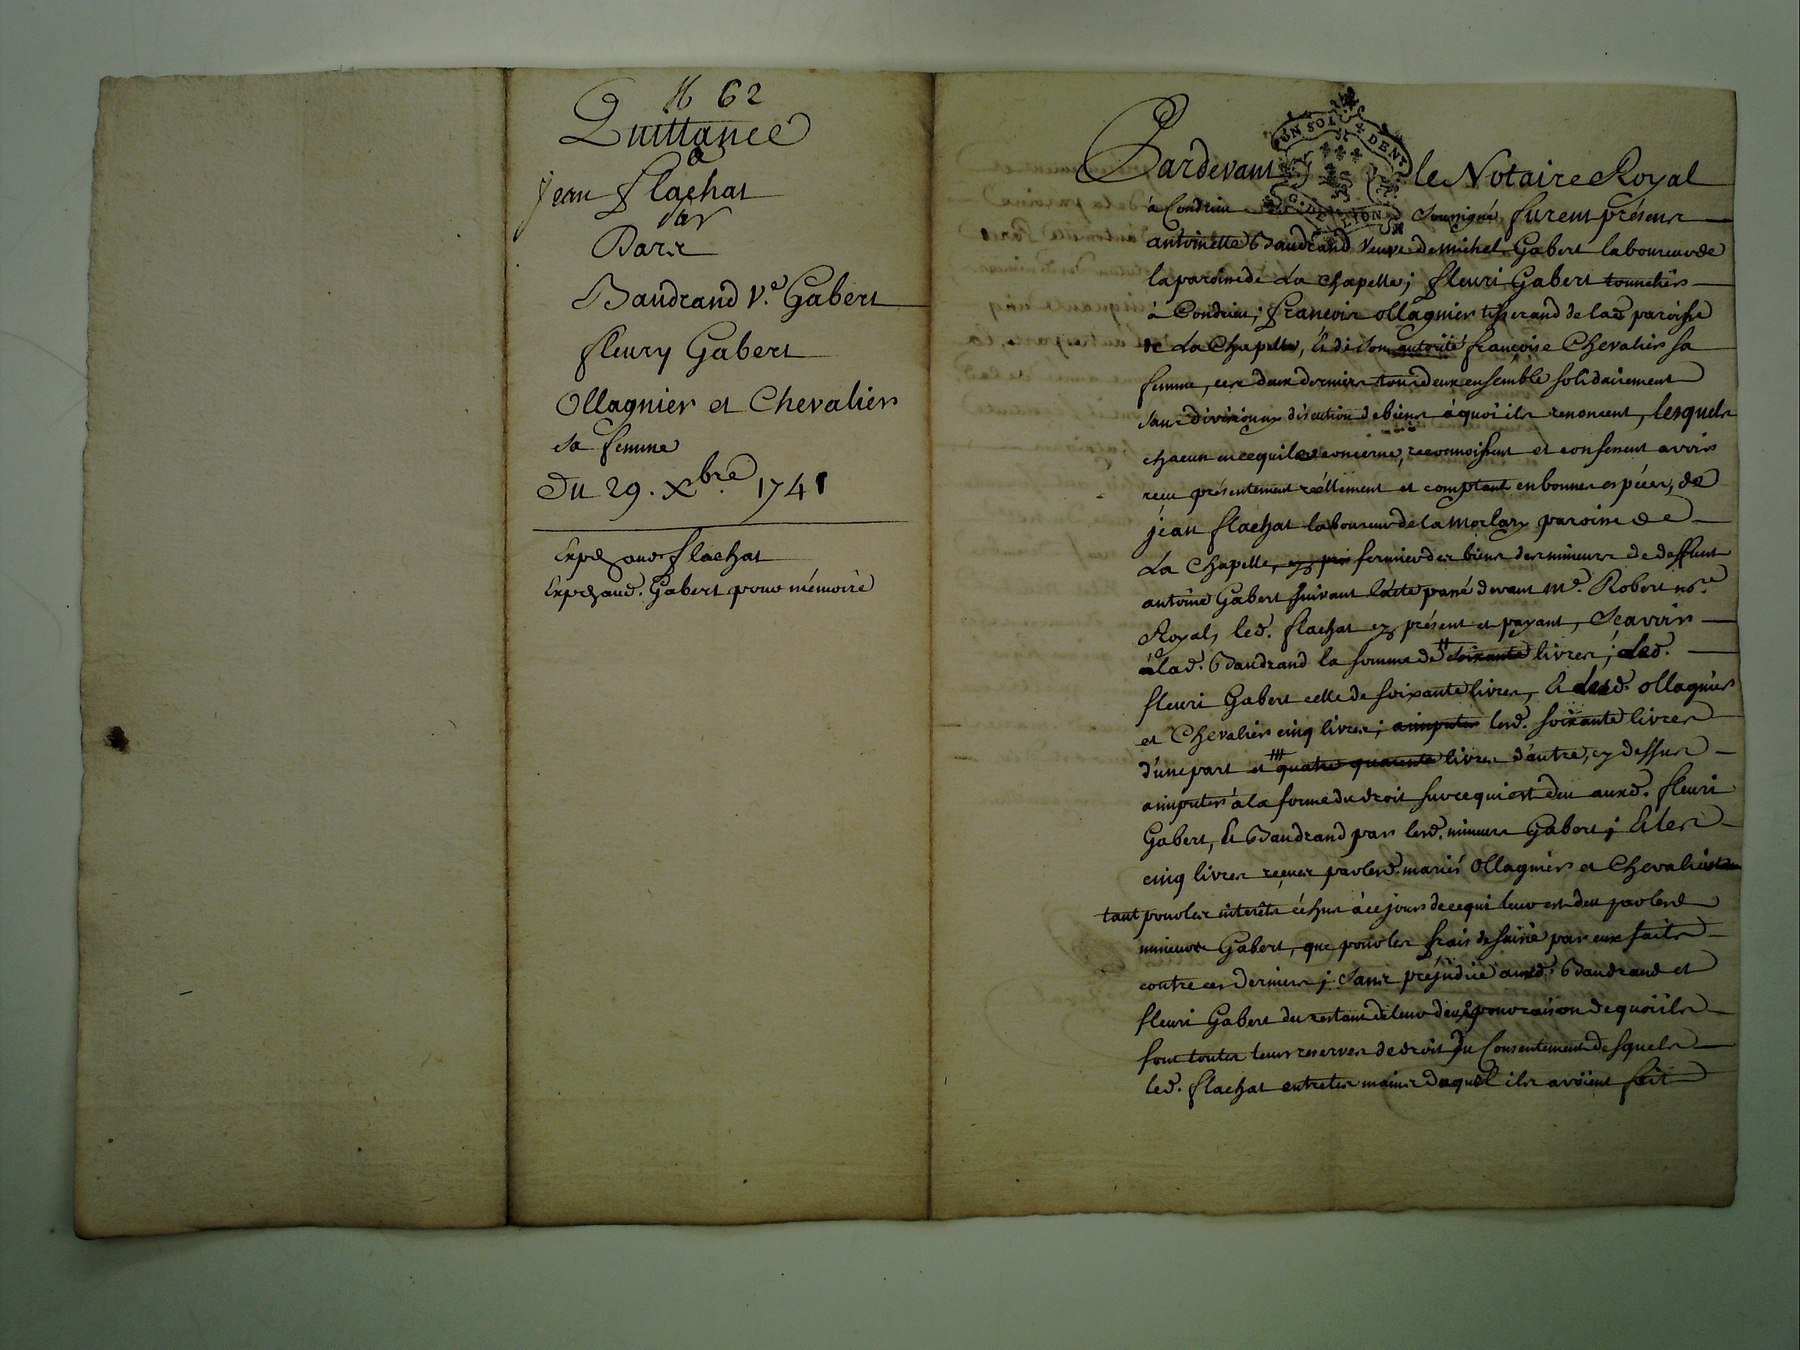 N 62
Quittance
a
jean flachat
par
Barr
Baudrand v.e Gabert
fleury Gabert
Ollagnier et Chevalier
sa femme
Du 29. Xbre. 1741
Exped. flachat
Exped. Gabert pour mémoire
UN SOL DENI
G. DE LYON
Pardevant le Notaire Royal
à Condrieu soussigné furent présens
antoinette Baudrand veuve de michel Gabert laboureur de
la paroisse de La Chapelle; fleuri Gabert tonnelier
à Condrieu; françois ollagnier tisserand de lad paroisse
de La Chapelle, & de son autorité françoise Chevalier sa
femme, ces deux derniers tous deux ensemble solidairement
sans division ny discution de biens à quoi ils renoncent, lesquels
chacun en ce qui les concerne, reconnoissent et confessent avoir
reçu présentement réellement et comptant en bonnes espéces, de
jean flachat laboureur de la paroisse de
La Chapelle, fermier des biens des mineurs de deffunt
antoine Gabert suivant l'acte passé devant me. Robert nore.
Royal, led. flachat cy présent et payant, Scavoir
à lad. Baudrand la somme de soixante livres; aud.
fleuri Gabert celle de soixante livres, & ausd. ollagnier
et Chevalier cinq livres; a imputer lesd. soixante livres
d'une part et quatre quarente livres d'autre, cy dessus
a imputer à la forme du droit sur ce qui est deu auxd. fleuri
Gabert, & Baudrand par lesd. mineurs Gabert; & les
cinq livres reçues par lesd. mariés Ollagnier et Chevalier
tant pour les interêts échus à ce jour de ce qui leur est deu par lesd
mineurs Gabert, que pour les frais de saisie par eux faits
contre ces derniers; sans préjudice auxd. Baudrand et
fleuri Gabert du restant de leur deu, pour raison de quoi ils
font toutes leurs reserves de droit du Consentement desquels
led. flachat entre les mains duquel ils avoient fait